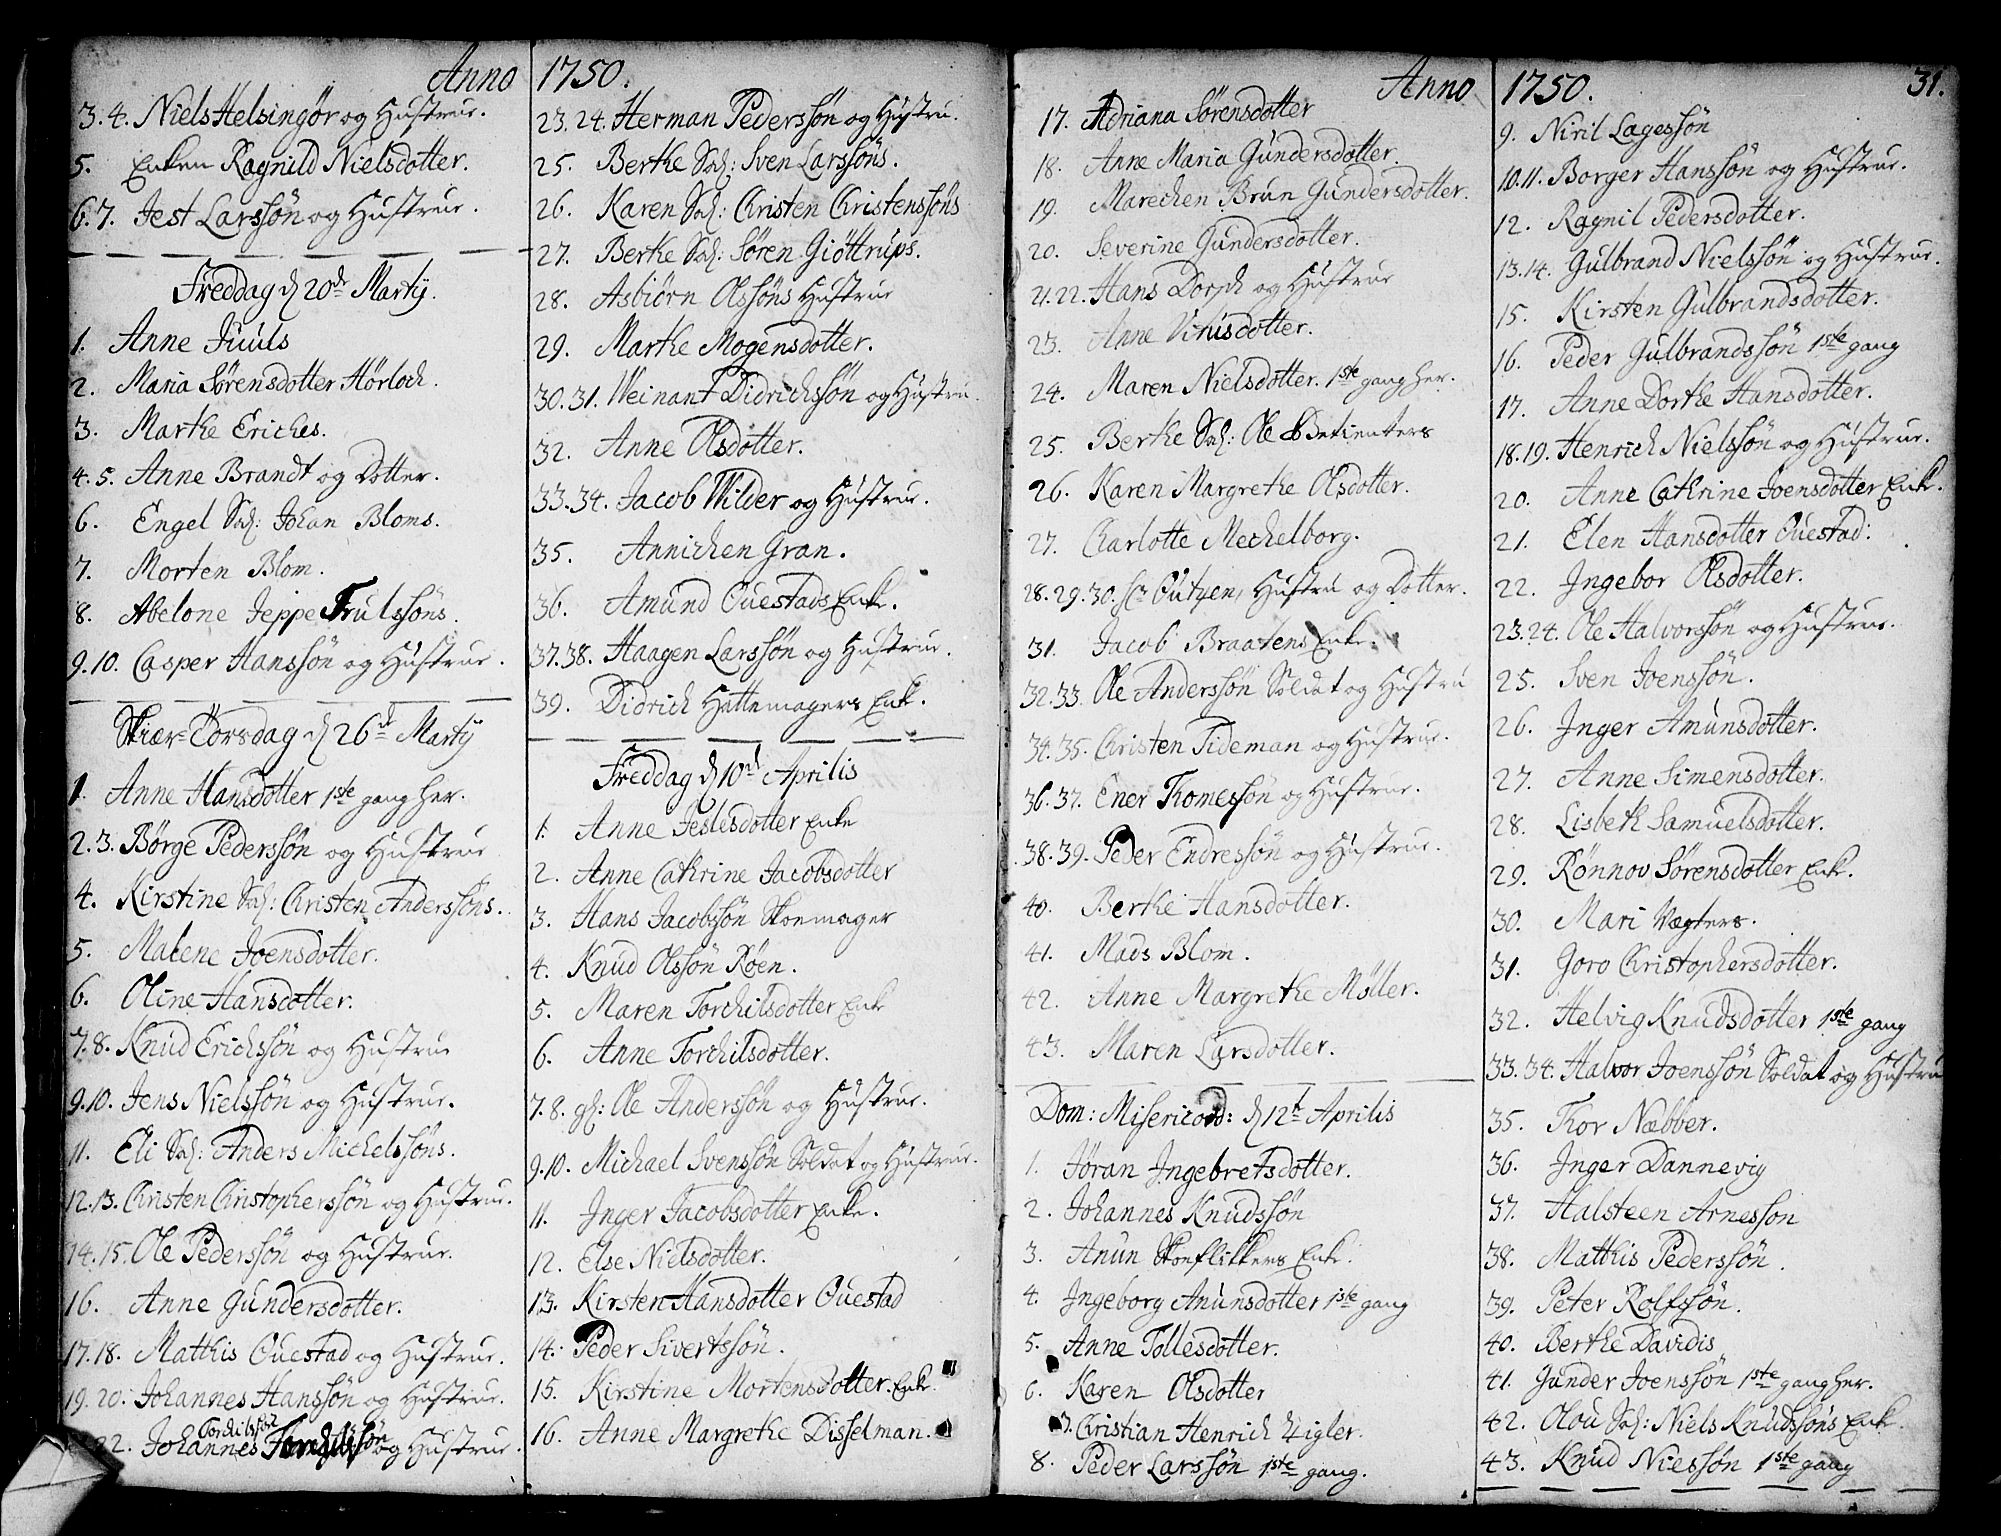 Anno 1750.
3. 4. Niels Helsingør og Hustrue.
5. Enken Ragnild Nielsdotter.
6. 7. Jest Larssøn og Hustrue.
Freddag d 20de Martij.
1. Anne Juuls
2. Maria Sørensdotter Hörloch.
3. Marthe Eriches.
4. 5. Anne Brandt og Dotter.
6. Engel Sal: Johan Bloms.
7. Morten Blom.
8. Abelone Jeppe Trulssøns.
9. 10. Casper Hanssøn og Hustrue.
Skiær-Torsdag d 26de Martij
1. Anne Hansdotter 1ste gang her.
2. 3. Børge Pederssøn og Hustrue
4. Kirstine Sal: Christen Anderssøns.
5. Malene Joensdotter.
6. Oline Hansdotter.
7. 8. Knud Erichssøn og Hustrue
9. 10. Jens Nielssøn og Hustrue.
11. Eli Sal: Anders Michelssøns.
12. 13. Christen Christopherssøn og Hustrue.
14. 15. Ole Pederssøn og Hustrue.
16. Anne Gundersdotter.
17. 18. Matthis Ouestad og Hustrue.
19. 20. Johannes Hanssøn og Hustrue.
22. Johannes og Hustrue.
23. 24. Herman Pederssøn og Hustru.
25. Berthe Sal: Sven Larssøns.
26. Karen Sal: Christen Christenssøns
27. Berthe Sal: Søren Giöttrups.
28. Asbiørn Olssøns Hustrue
29. Marthe Mogensdotter.
30. 31. Weinant Didrichssøn og Hustru.
32. Anne Olsdotter.
33. 34. Jacob Wilder og Hustrue.
35. Annichen Gran.
36. Amund Ouestads Enke.
37. 38. Haagen Larssøn og Hustrue.
39. Didrich Hattemagers Enk.
Freddag d 10de Aprilis
1. Anne Jeslesdotter Enke
2. Anne Cathrine Jacobsdotter
3. Hans Jacobssøn Skoemager
4. Knud Olssøn Røen.
5. Maren Torchilsdotter Enk
6. Anne Torchilsdotter.
7. 8. gl: Ole Anderssøn og Hustrue.
9. 10. Michael Svenssøn Soldat og Hustrue.
11. Inger Jacobsdotter Enke.
12. Else Nielsdotter.
13. Kirsten Hansdotter Ouestad
14. Peder Sivertssøn.
15. Kirstine Mortensdotter Enke.
16. Anne Margrethe Disselman.
Anno 1750. 31.
17. Adriana Sørensdotter
18. Anne Maria Gundersdotter.
19. Marechen Brun Gundersdotter.
20. Severine Gundersdotter.
21. 22. Hans Dorph og Hustrue
23. Anne Vinisdotter.
24. Maren Nielsdotter. 1ste gang her.
25. Berthe Sal: Ole Betienters
26. Karen Margrethe Olsdotter.
27. Charlotte Mechelborg.
28. 29. 30. Sr Gutzen, Hustru og Dotter.
31. Jacob Braatens Enke.
32. 33. Ole Anderssøn Soldat og Hustru
34. 35. Christen Tideman og Hustrue.
36. 37. Ener Thomessøn og Hustrue.
38. 39. Peder Endressøn og Hustrue.
40. Berthe Hansdotter.
41. Mads Blom.
42. Anne Margrethe Møller.
43. Maren Larsdotter.
Dom: Misericord: d 12te Aprilis
1. Jøran Ingebretsdotter.
2. Johannes Knudssøn
3. Anun Skoeflikkers Enk.
4. Ingeborg Anunsdotter 1ste gang
5. Anne Tollesdotter.
6. Karen Olsdotter
7. Christian Henrich Zigler.
8. Peder Larssøn 1ste gang.
9. Niril Lagessøn
10. 11. Borger Hanssøn og Hustrue.
12. Ragnil Pedersdotter.
13. 14. Gulbrand Nielssøn og Hustrue.
15. Kirsten Gulbrandsdotter.
16. Peder Gulbrandssøn 1ste gang
17. Anne Dorthe Hansdotter.
18. 19. Henrich Nielssøn og Hustrue.
20. Anne Cathrine Joensdotter Enk.
21. Elen Hansdotter Ouestad:
22. Ingebor Olsdotter.
23. 24. Ole Halvorssøn og Hustrue.
25. Sven Joenssøn.
26. Inger Amunsdotter.
27. Anne Simensdotter.
28. Lisbeth Samuelsdotter.
29. Rønnov Sørensdotter Enk.
30. Mari Vægters.
31. Goro Christophersdotter.
32. Helvig Knudsdotter 1ste gang
33. 34. Halvor Joenssøn Soldat og Hustru
35. Thor Næbber.
36. Inger Dannevig
37. Halsteen Arnesson
38. Matthis Pederssøn.
39. Peter Rolfssøn.
40. Berthe Davidis
41. Gunder Joenssøn 1ste gang her.
42. Olou Sal: Niels Knudssøns Enk.
43. Knud Niessøn 1ste gang